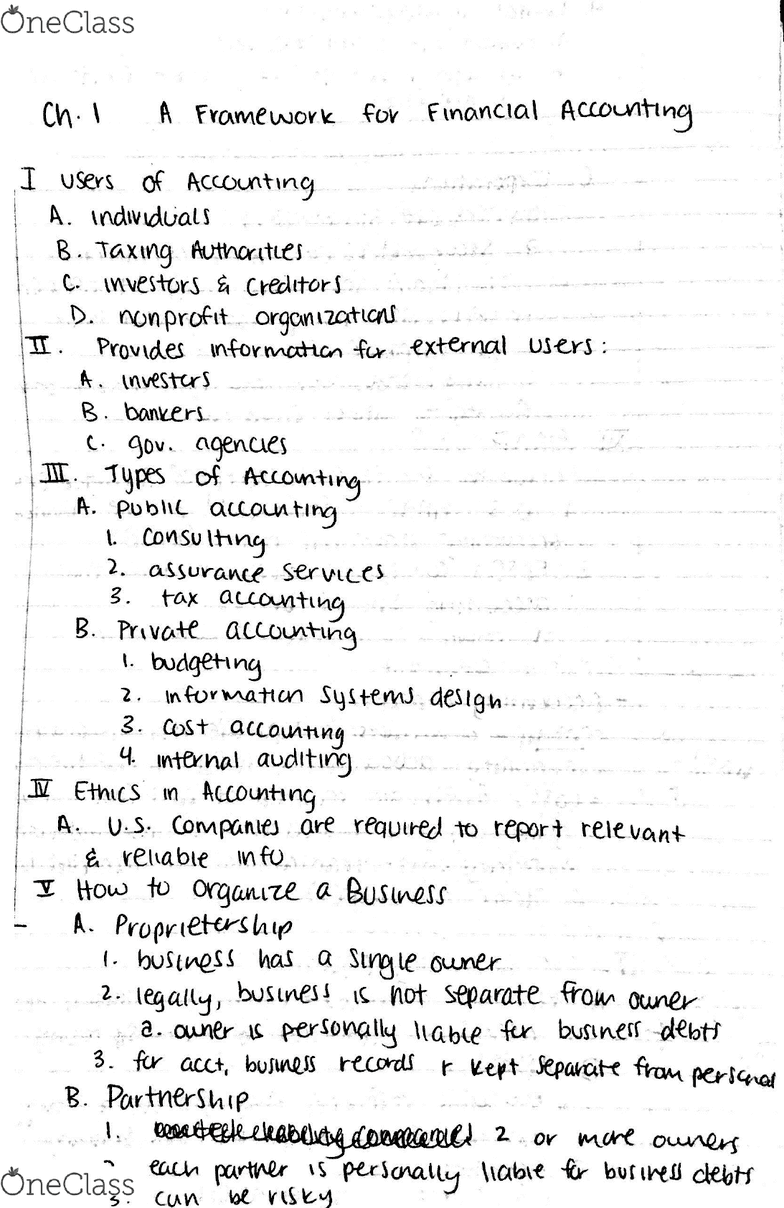 OneClass
Ch. 1 A Framework for Financial Accounting
I Users of Accounting
A. individuals
B. Taxing Authorities
C. investors & creditors
D. nonprofit organizations
II. Provides information for external users:
A. investors
B. bankers
C. gov. agencies
III. Types of Accounting
A. public accounting
1. consulting
2. assurance services
3. tax accounting
B. Private accounting
1. budgeting
2. information systems design
3. cost accounting
4. internal auditing
IV Ethics in Accounting
A. U.S. companies are required to report relevant
& reliable info
V How to Organize a Business
A. Proprietership
1. business has a single owner
2. legally, business is not separate from owner
a. owner is personally liable for business debts
3. for acct, business records r kept separate from personal
B. Partnership
1. 2 or more owners
each partner is personally liable for business debts
OneClass
3. can be risky